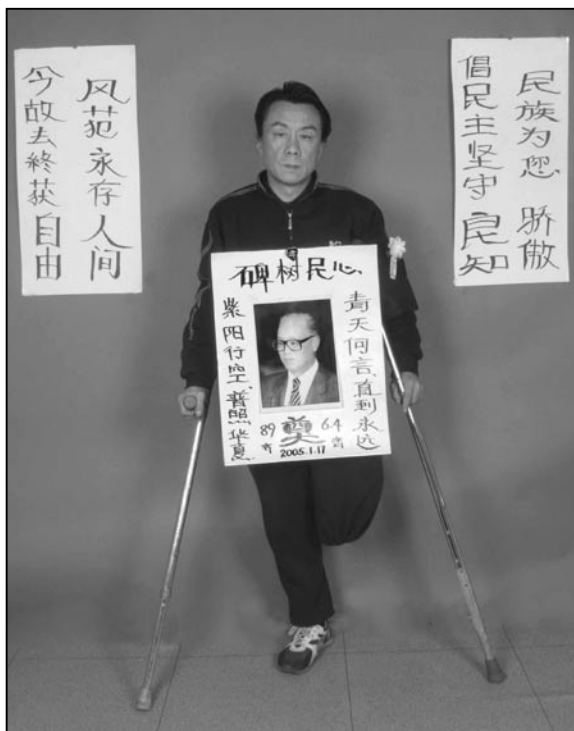 民族为您 骄傲
倡民主坚守 良知
风范永存 人间
今故去終获 自由
碑树民心
青天何言、直到永远
紫阳行空、普照华夏
89 奠 6.4
2005.1.17